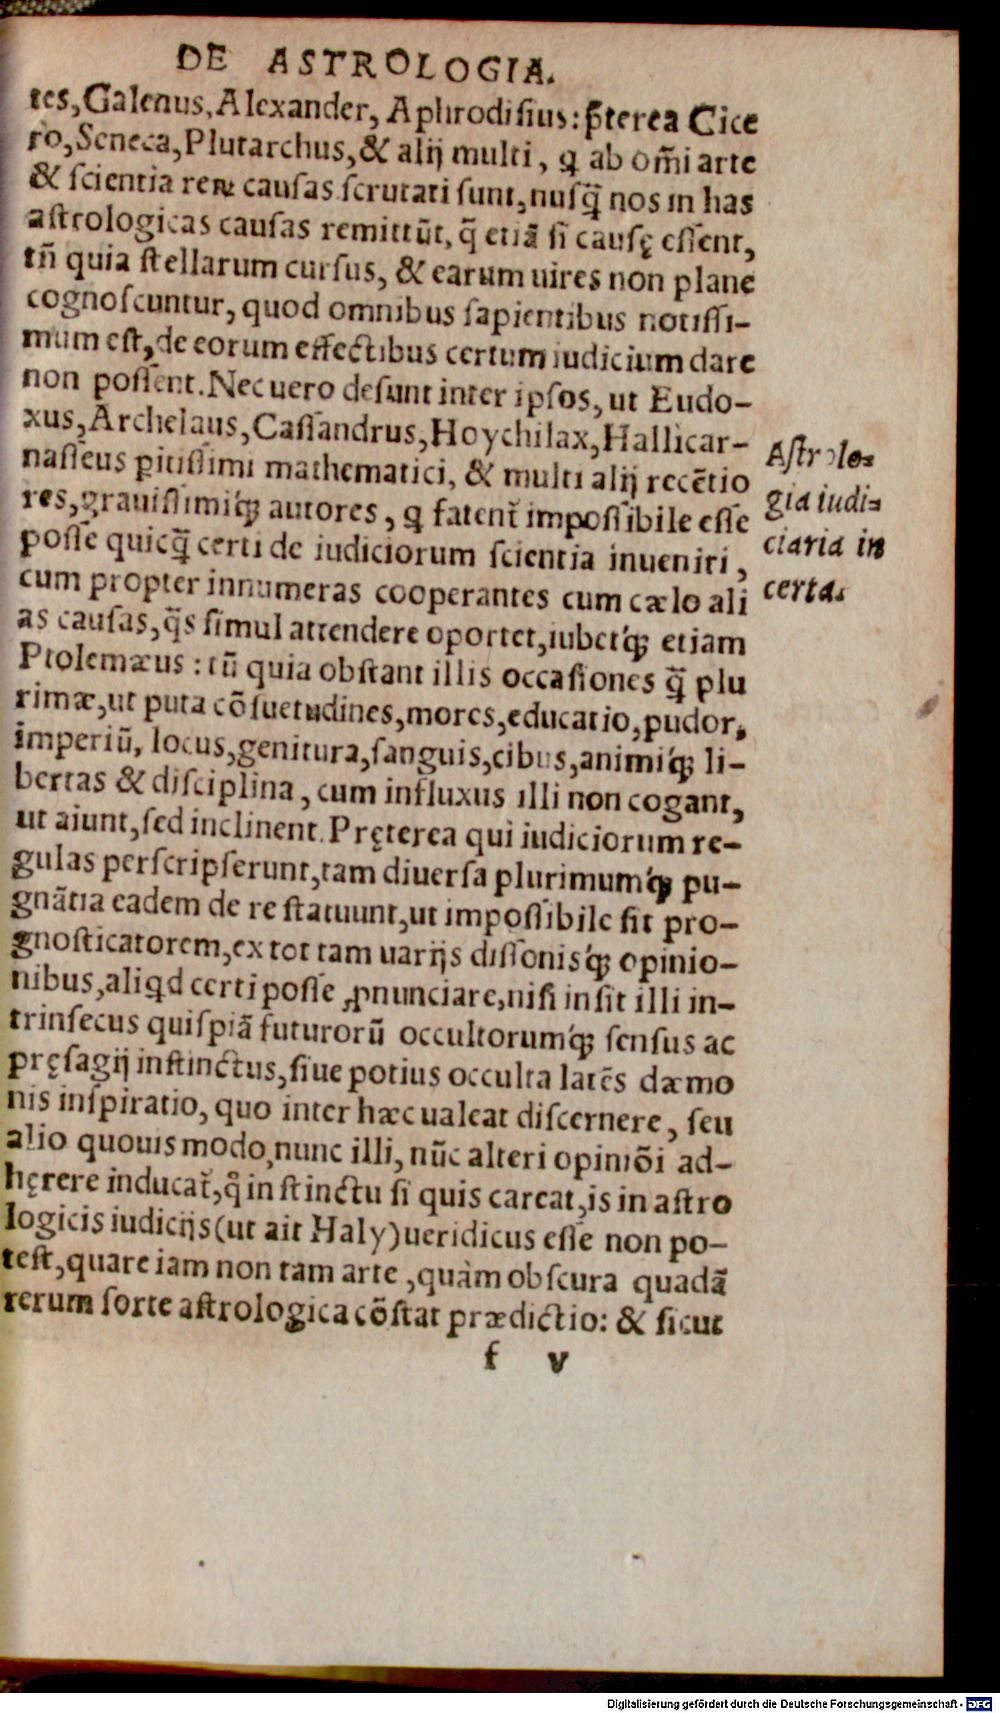 DE ASTROLOGIA.
tes, Galenus, Alexander, Aphrodisius: p̃terea Cice
ro, Seneca, Plutarchus, & alij multi, ꝗ ab om̃i arte
& scientia reꝝ causas scrutati sunt, nusq̃ nos in has
astrologicas causas remittũt, q̃ etiã si causę essent,
tñ quia stellarum cursus, & earum uires non plane
cognoscuntur, quod omnibus sapientibus notissi-
mum est, de eorum effectibus certum iudicium dare
non possent. Nec uero desunt inter ipsos, ut Eudo-
xus, Archelaus, Cassandrus, Hoychilax, Hallicar-
nasseus ꝑitissimi mathematici, & multi alij recẽtio
res, grauissimiq́ꝫ autores, ꝗ fatent᷑ impossibile esse
posse quicq̃ certi de iudiciorum scientia inueniri,
cum propter innumeras cooperantes cum cælo ali
as causas, q̃s simul attendere oportet, iubetq́ꝫ etiam
Ptolemæus: tũ quia obstant illis occasiones q̃ plu
rimæ, ut puta cõsuetudines, mores, educatio, pudor,
imperiũ, locus, genitura, sanguis, cibus, animiq́ꝫ li-
bertas & disciplina, cum influxus illi non cogant,
ut aiunt, sed inclinent. Pręterea qui iudiciorum re-
gulas perscripserunt, tam diuersa plurimumq́ꝫ pu-
gnãtia eadem de re statuunt, ut impossibile sit pro-
gnosticatorem, ex tot tam uarijs dissonisq́ꝫ opinio-
nibus, aliꝗd certi posse ꝓnunciare, nisi insit illi in-
trinsecus quispiã futurorũ occultorumq́ꝫ sensus ac
pręsagij instinctus, siue potius occulta latẽs dæmo
nis inspiratio, quo inter hæc ualeat discernere, seu
alio quouis modo, nunc illi, nũc alteri opiniõi ad-
hęrere inducat᷑, q̊ instinctu si quis careat, is in astro
logicis iudicijs (ut ait Haly) ueridicus esse non po-
test, quare iam non tam arte, quàm obscura quadã
rerum sorte astrologica cõstat prædictio: & sicut
f v
Astrolo-
gia iudi-
ciaria in
certa.
Digitalisierung gefördert durch die Deutsche Forschungsgemeinschaft - DFG